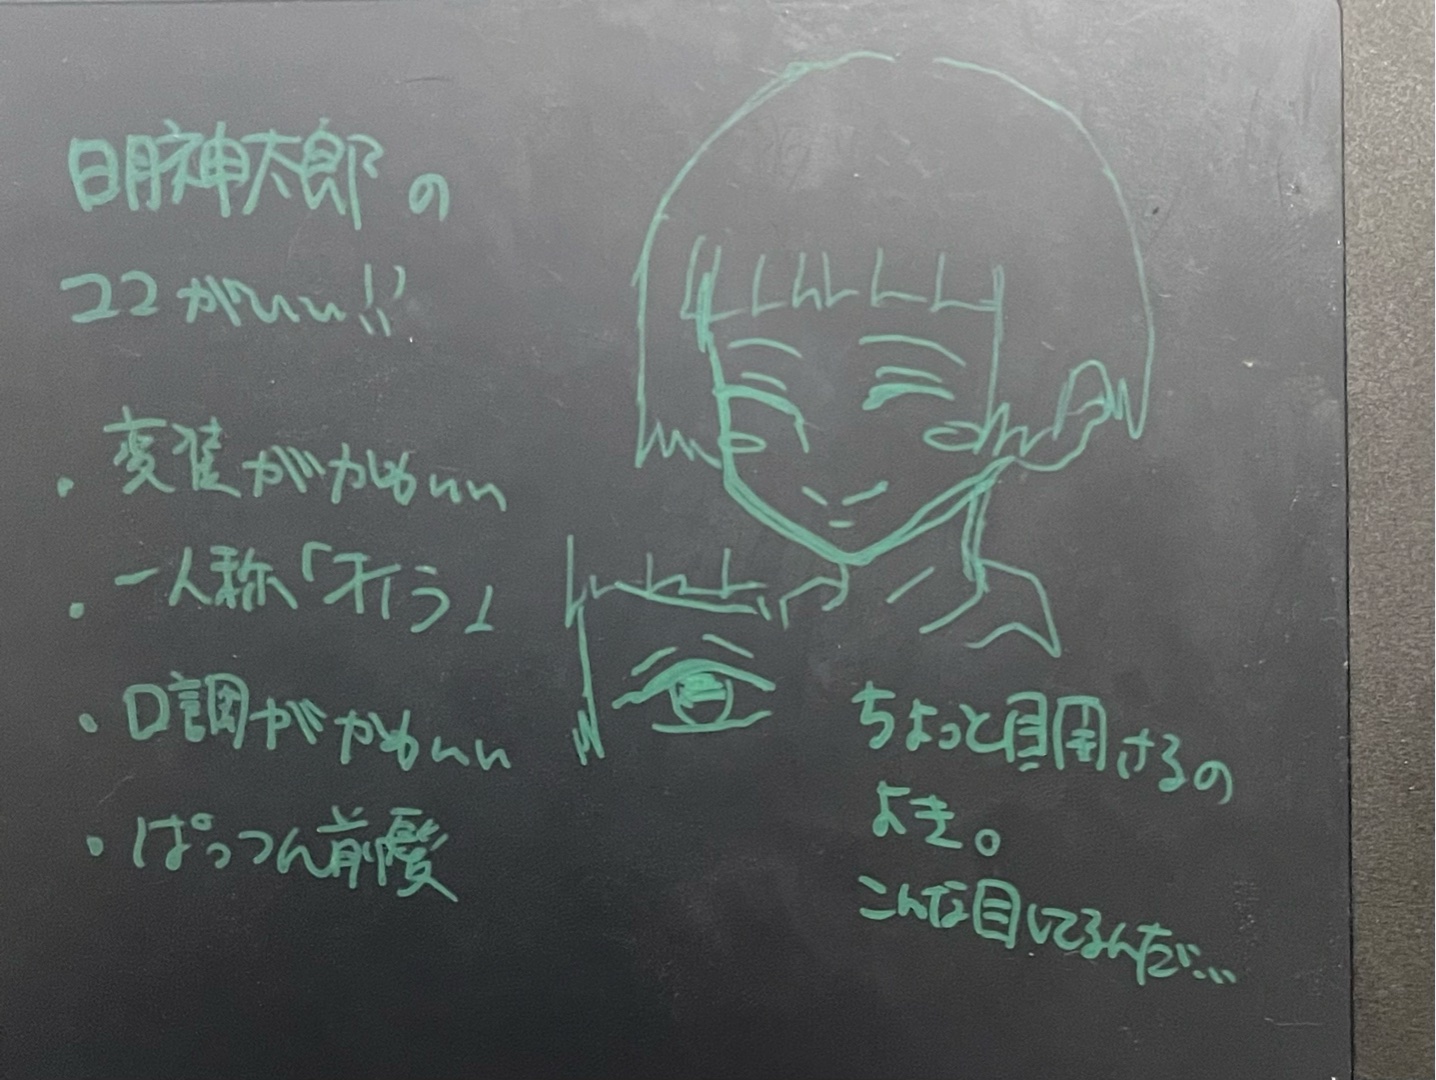 明神太郎の
ココがいい!!
・変装がかわいい
・一人称「オイラ」
・口調がかわいい
・ぱっつん前髪
ちょっと目開けるの
よき。
こんな目してるんだ…